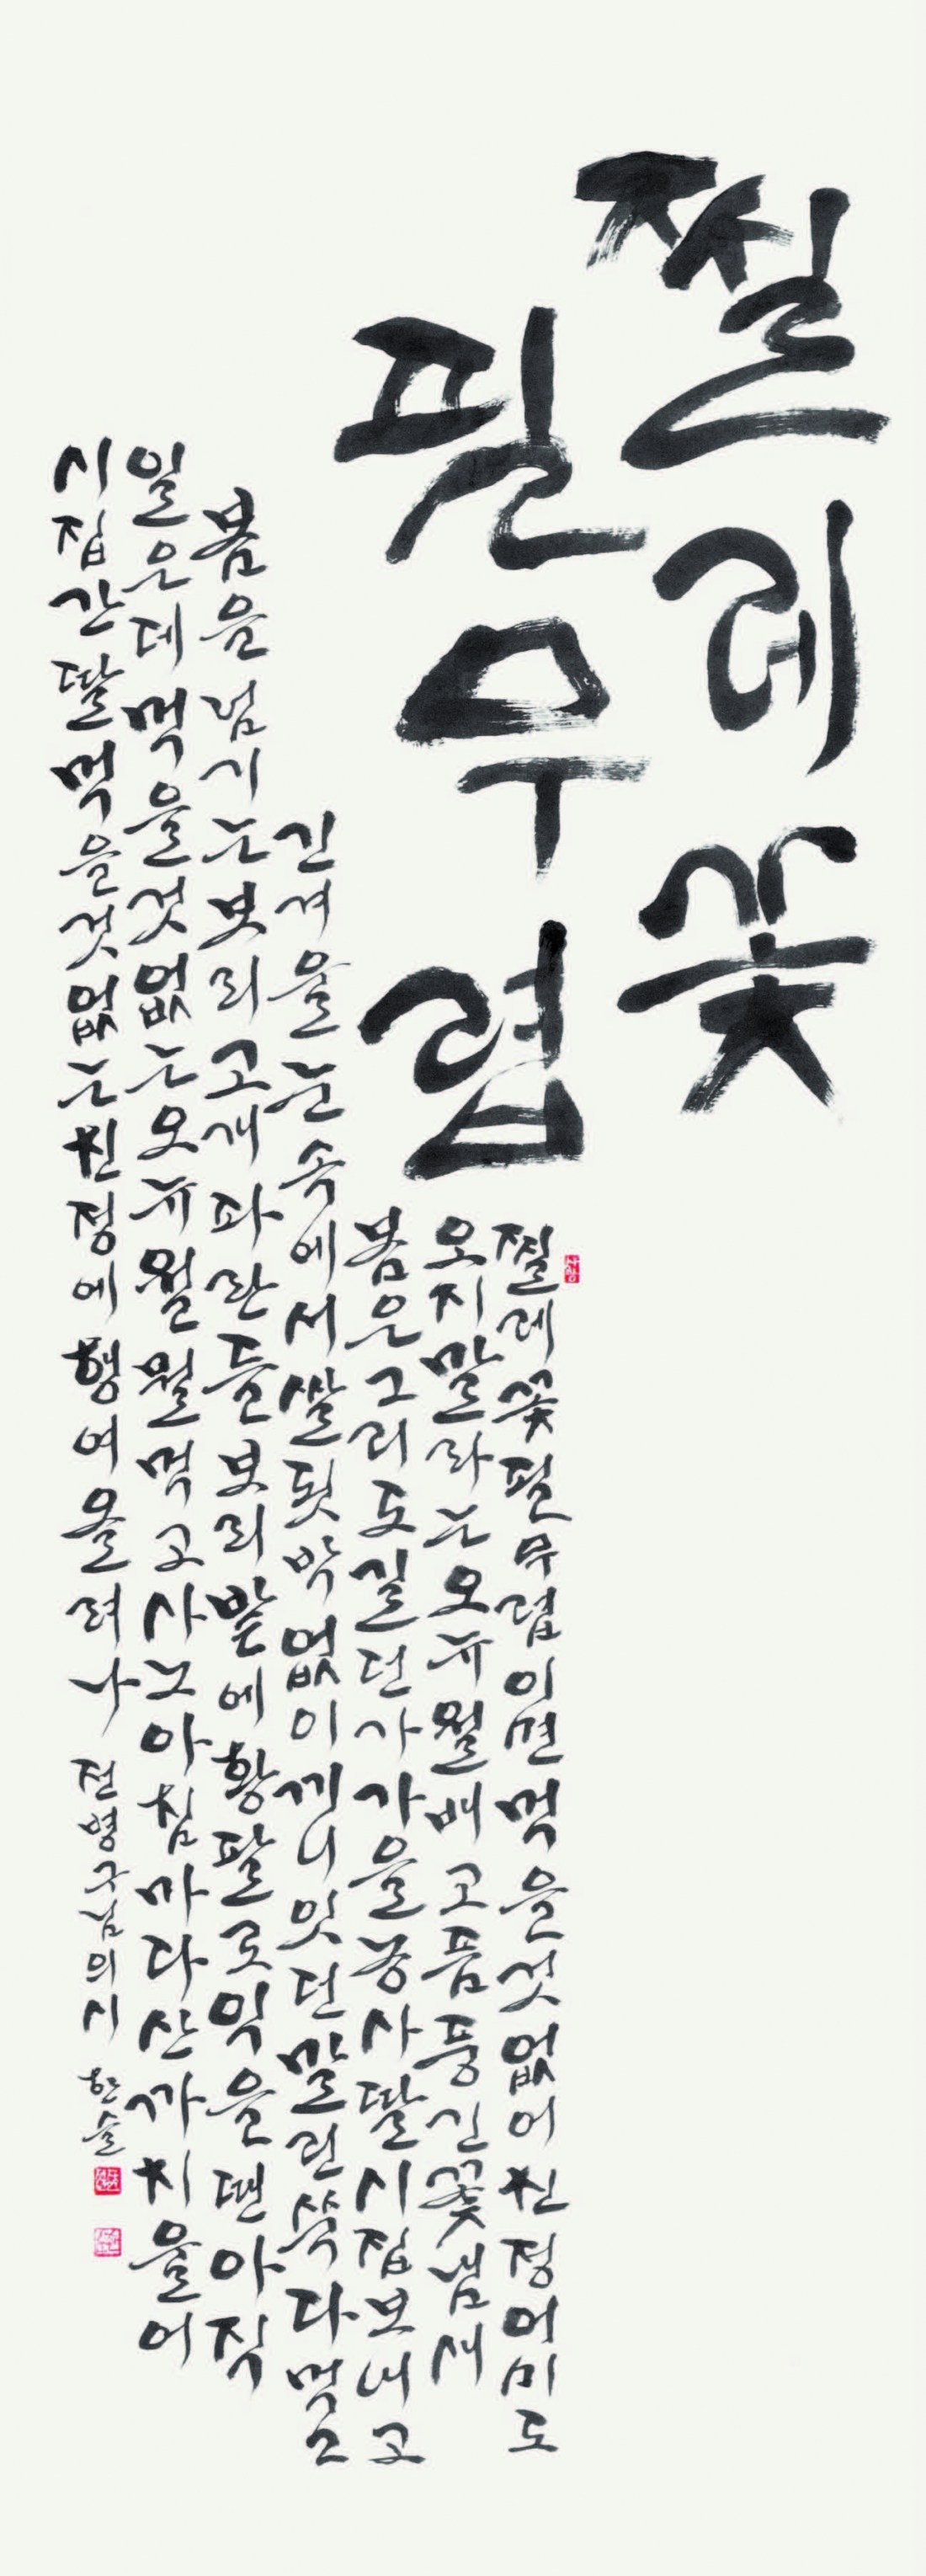 찔레꽃
필무렵
찔레꽃필무렵이면먹을것없어친정어미도
오지말라는오뉴월배고픔풍긴꽃냄새
봄은그리도길던가가을농사딸시집보내고
긴겨울눈속에서쌀됫박없이끼니잇던말린쑥다먹고
봄을넘기는보리고개파란들보리밭에황팔로익을땐아직
일은데먹을것없는오뉴월월먹고사노아침마다산까치울어
시집간딸먹을것없는친정에행여올려나 전병구님의시 한솔
사랑